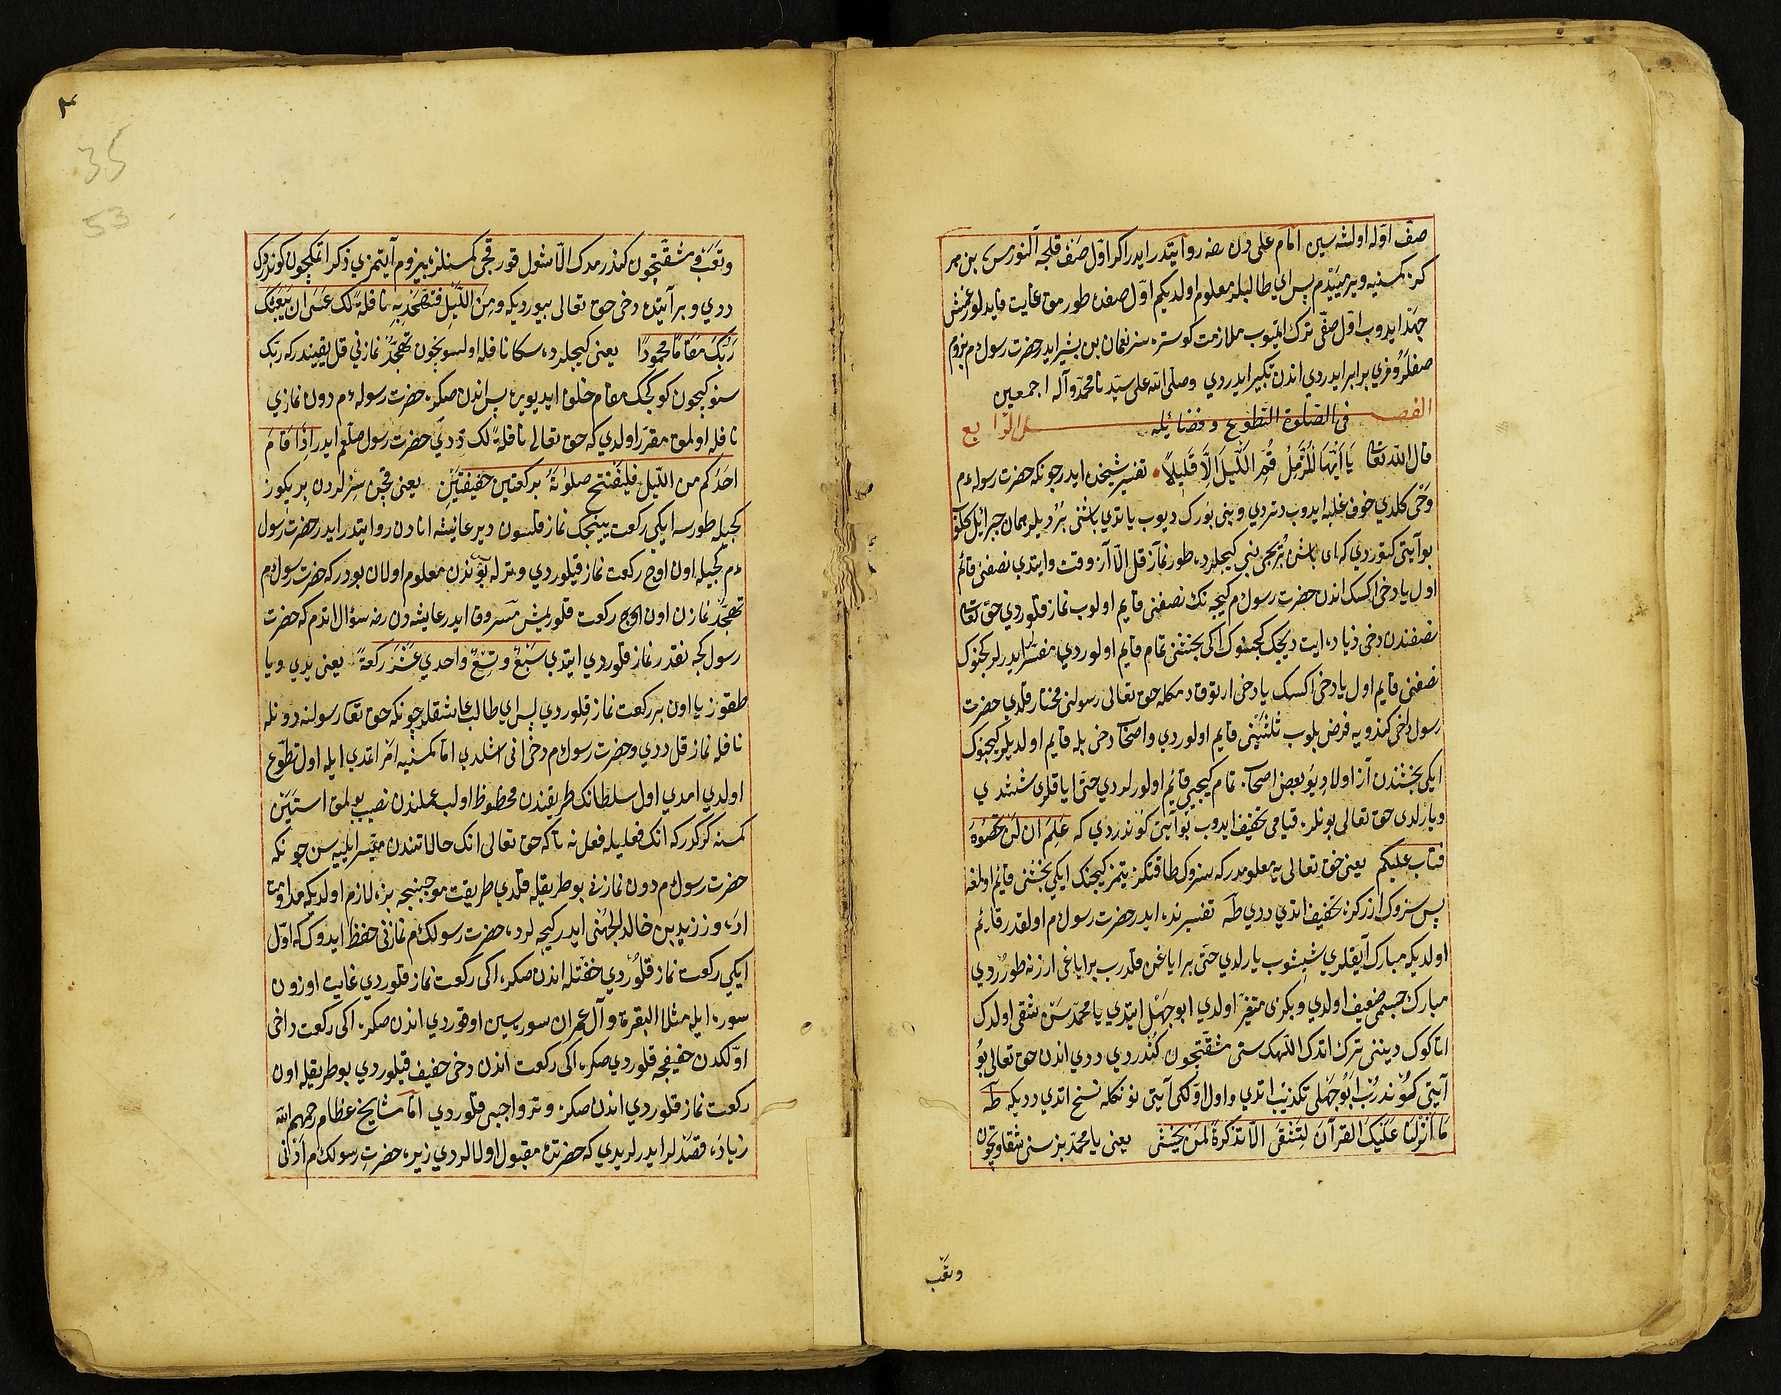 صف اوله اولشه سین امام علی دن رضه روایتدر ایدر اکر اول صف قلجه النورسه بن هر
کز کمسنیه ویرمیدم پس ای طالبلر معلوم اولدیکم اول صفده طورمق غایت فایدلو
جهد ایدوب اول صفی ترک اتمیوب ملازمت کوستره سز نعمان بن بشیر ایدر حضرت رسول عم بزوم
صفلرومزی برابر ایدردی اندن تکبیر ایدردی وصلی الله علی سیدنا محمد وآله اجمعین
الفصل الرابع فی الصلوة التطوع وفضائله
قال الله تعالی یا ایها المزمل قم اللیل الا قلیلا تفسیر شیخده ایدر چونکه حضرت رسوله عم
وحی کلدی خوف غلبه ایدوب دتردی وبنی بورک دیوب یاتدی باشنی همان جبرائیل کلوب
بو آیتی کتوردی که ای باشن بنی کیجلرده طور نماز قل الا آز وقت وایتدی نصفنی قائم
اول یا دخی اکسک اندن حضرت رسول عم کیجه نک نصفنی قایم اولوب نماز قلوردی حق تعالی
نصفندن دخی زیاده ایت دیجک کیجه نوک ایکی بخشنی تمام قایم اولوردی مفسرلر ایدرلر کیجنوک
نصفنی قایم اول یا دخی اکسک یا دخی ارتوق دمکله حق تعالی رسولنی مختار قلدی حضرت
رسول دخی کندویه فرض بلوب ثلثینی قایم اولوردی واصحاب دخی بله قایم اولدیلر کیجنوک
ایکی بخشندن آز اولا دیو بعض اصحاب تمام کیجیی قائم اولورلردی حتی ایاقلری ششدی
ویارلدی حق تعالی بونلره قیامی تخفیف ایدوب بو آیتی کوندردی که علم ان لن تحصوه
فتاب علیکم یعنی حق تعالی یه معلومدر که سزوک طاقتکز یتمز کیجنک ایکی بخشنی قایم اولمغه
پس سزوک ارزکزه تخفیف اتدی ددی طه تفسیرنده ایدر حضرت رسول عم اولقدر قائم
اولدیکه مبارک ایقلری شیشوب یارلدی حتی بر ایاغن قلدرب بر ایاغی ارزنه طوروردی
مبارک جسمی ضعیف اولدی وبکزی متغیر اولدی ابو جهل ایتدی یا محمد سن شقی اولدک
اتاکوک دیننی ترک اتدک اللهک سنی مشقتچون کندردی ددی اندن حق تعالی بو
آیتی کوندرب ابو جهلی تکذیب اتدی واول اولکی آیتی بونکله نسخ اتدی ددیکه طه
ما انزلنا علیک القرآن لتشقی الا تذکرة لمن یخشی یعنی یا محمد بز سنی شقاوتچون
وتعب
وتعب ومشقتچون کندرمدک الا شول قورقجی کمسنلره بیزوم آیتمزی ذکر اتمکچون کوندردک
ددی وبر آیتده دخی حق تعالی بیوردیکه ومن اللیل فتهجد به نافلة لک عسی ان یبعثک
ربک مقاما محمودا یعنی کیجلرده سکا نافله اولسونچون تهجد نمازنی قل یقیندر که ربک
سنوکیچون کوکچک مقام خلق ایدیویره پس اندن صکره حضرت رسوله عم دون نمازی
نافله اولمق مقرر اولدی که حق تعالی نافلة لک ددی حضرت رسول صلعم ایدر اذا قام
احدکم من اللیل فلیفتتح صلوته برکعتین خفیفتین یعنی قچن سزلردن بریکوز
کیجیله طورسه ایکی رکعت یینجک نماز قلسون دیر عائیشه انادن روایتدر ایدر حضرت رسول
عم کیجیله اون اوچ رکعت نماز قیلوردی وتر له بوندن معلوم اولان بودر که حضرت رسول عم
تهجد نمازن اون اوچ رکعت قلوریمش مسروق ایدر عایشه دن رضه سؤال اتدم که حضرت
رسول کیجه نقدر نماز قلوردی ایتدی سبع وتسع واحدی عشر رکعة یعنی یدی ویا
طقوز یا اون بر رکعت نماز قیلوردی پس ای طالب عاشقلر چونکه حق تعا رسولنه دونله
نافله نماز قل ددی وحضرت رسول عم دخی انی اشلدی اما کمسنیه امر اتمدی ایله اول تطوع
اولدی امدی اول سلطانک طریقندن محظوظ اولب عملندن نصیب بولمق استین
کمسنه کرکدر که انک فعلیله فعلنه تاکه حق تعالی انک حالاتندن میسر ایلیه سن چونکه
حضرت رسول عم دون نمازنی بو طریقله قلدی طریقت موجبنجه بزه لازم اولدیکه مداومت
اده وز زید بن خالد الجهنی ایدر کیجه لرده حضرت رسولک عم نمازنی حفظ ایدوک که اول
ایکی رکعت نماز قلوردی خفتله اندن صکره اکی رکعت نماز قلوردی غایت اوزون
سوره ایله مثلا البقره وآل عمران سوره سین اوقوردی اندن صکره اکی رکعت داخی
اولکدن خفیفجه قلوردی صکره اکی رکعت اندن دخی خفیف قیلوردی بو طریقله اون
رکعت نماز قلوردی اندن صکره وتر واجبی قلوردی اما مشایخ عظام رحمهم الله
زیاده قصد لر ایدرلریدی که حضرتده مقبول اولالردی زیره حضرت رسولک عم
35
53